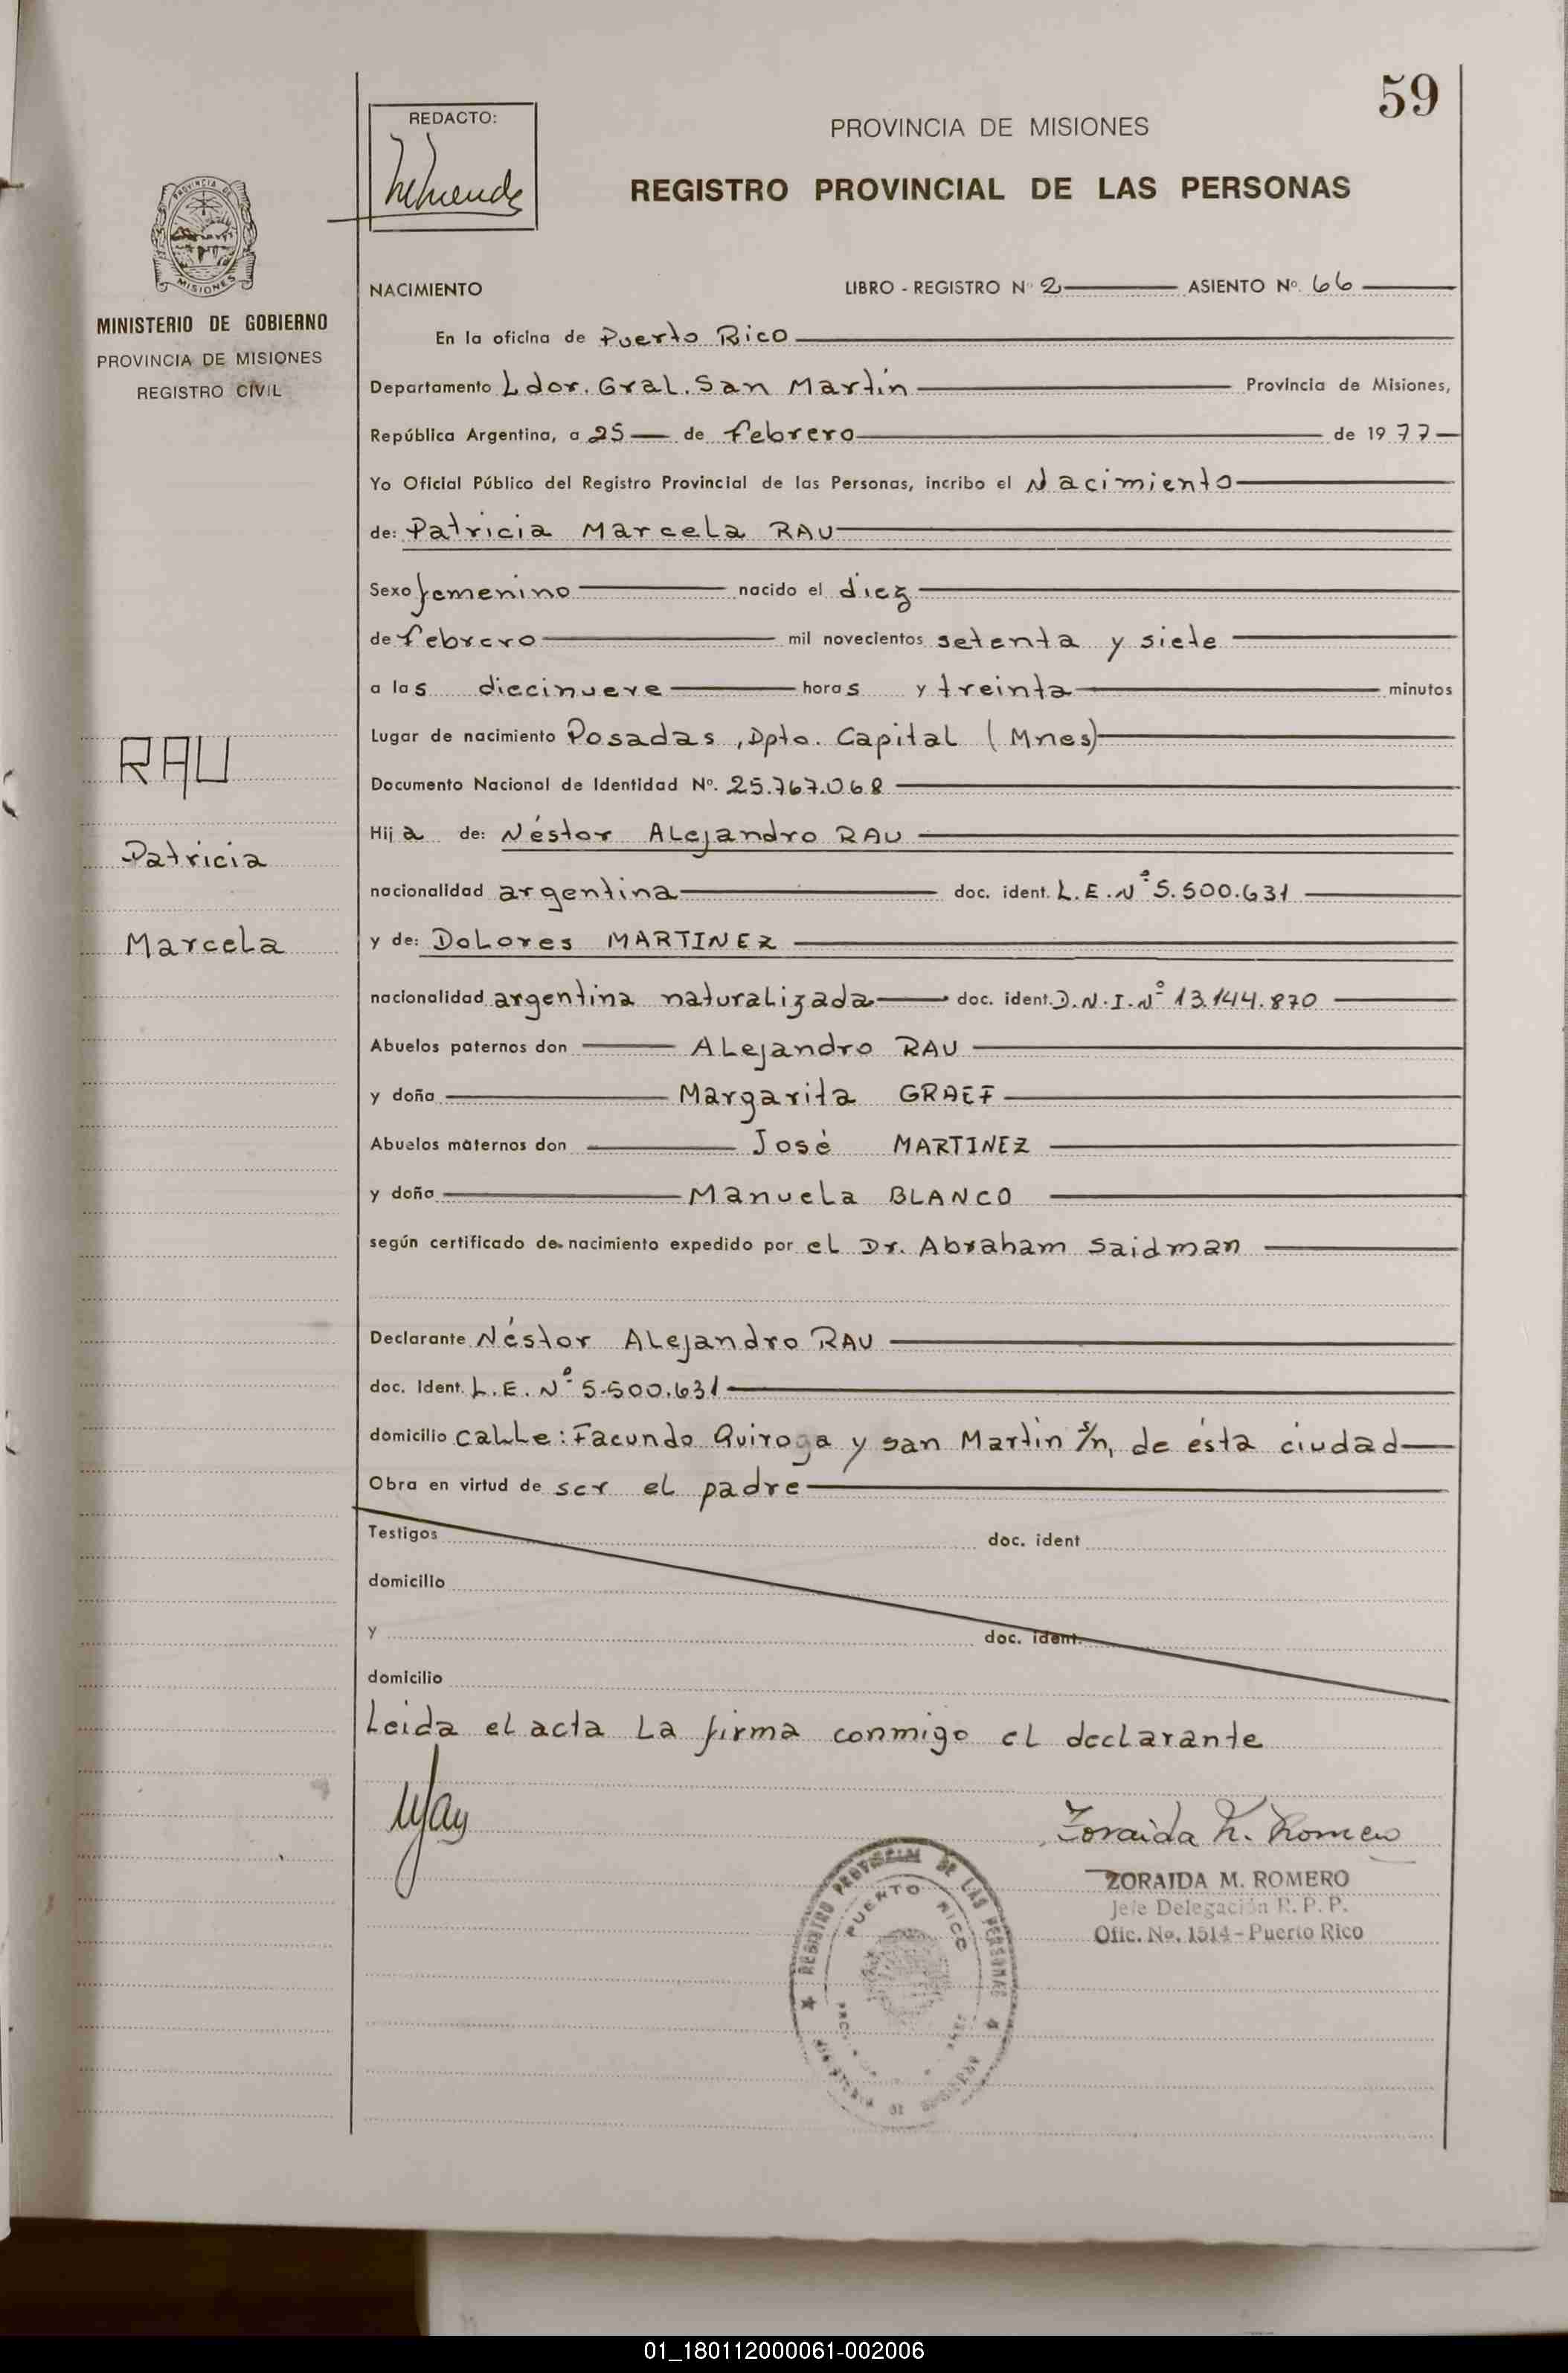 59
REDACTO:
PROVINCIA DE MISIONES
REGISTRO PROVINCIAL DE LAS PERSONAS
PROVINCIA DE
MISIONES
MINISTERIO DE GOBIERNO
PROVINCIA DE MISIONES
REGISTRO CIVIL
NACIMIENTO LIBRO - REGISTRO Nº 2 ASIENTO Nº 66
En la oficina de Puerto Rico
Departamento Ldor. Gral. San Martín Provincia de Misiones,
República Argentina, a 25 de febrero de 1977
Yo Oficial Público del Registro Provincial de las Personas, incribo el Nacimiento
de: Patricia Marcela RAU
Sexo femenino nacido el diez
de febrero mil novecientos setenta y siete
a las diecinueve horas y treinta minutos
Lugar de nacimiento Posadas, Dpto. Capital (Mnes)
Documento Nacional de Identidad Nº. 25.767.068
Hija de: Néstor Alejandro RAU
nacionalidad argentina doc. ident. L.E.Nº 5.500.631
y de: Dolores MARTINEZ
nacionalidad argentina naturalizada doc. ident. D.N.I.Nº 13.144.870
Abuelos paternos don Alejandro RAU
y doña Margarita GRAEF
Abuelos maternos don José MARTINEZ
y doña Manuela BLANCO
según certificado de nacimiento expedido por el Dr. Abraham Saidman
Declarante Néstor Alejandro RAU
doc. Ident. L.E. Nº 5.500.631
domicilio calle: Facundo Quiroga y san Martin s/n, de ésta ciudad
Obra en virtud de ser el padre
Testigos doc. ident
domicilio
y doc. ident.
domicilio
Leida el acta la firma conmigo el declarante
RAU
Patricia
Marcela
Zoraida M. Romero
ZORAIDA M. ROMERO
Jefe Delegación R. P. P.
Ofic. No. 1514 - Puerto Rico
REGISTRO PROVINCIAL DE LAS PERSONAS
PUERTO RICO
01_180112000061-002006